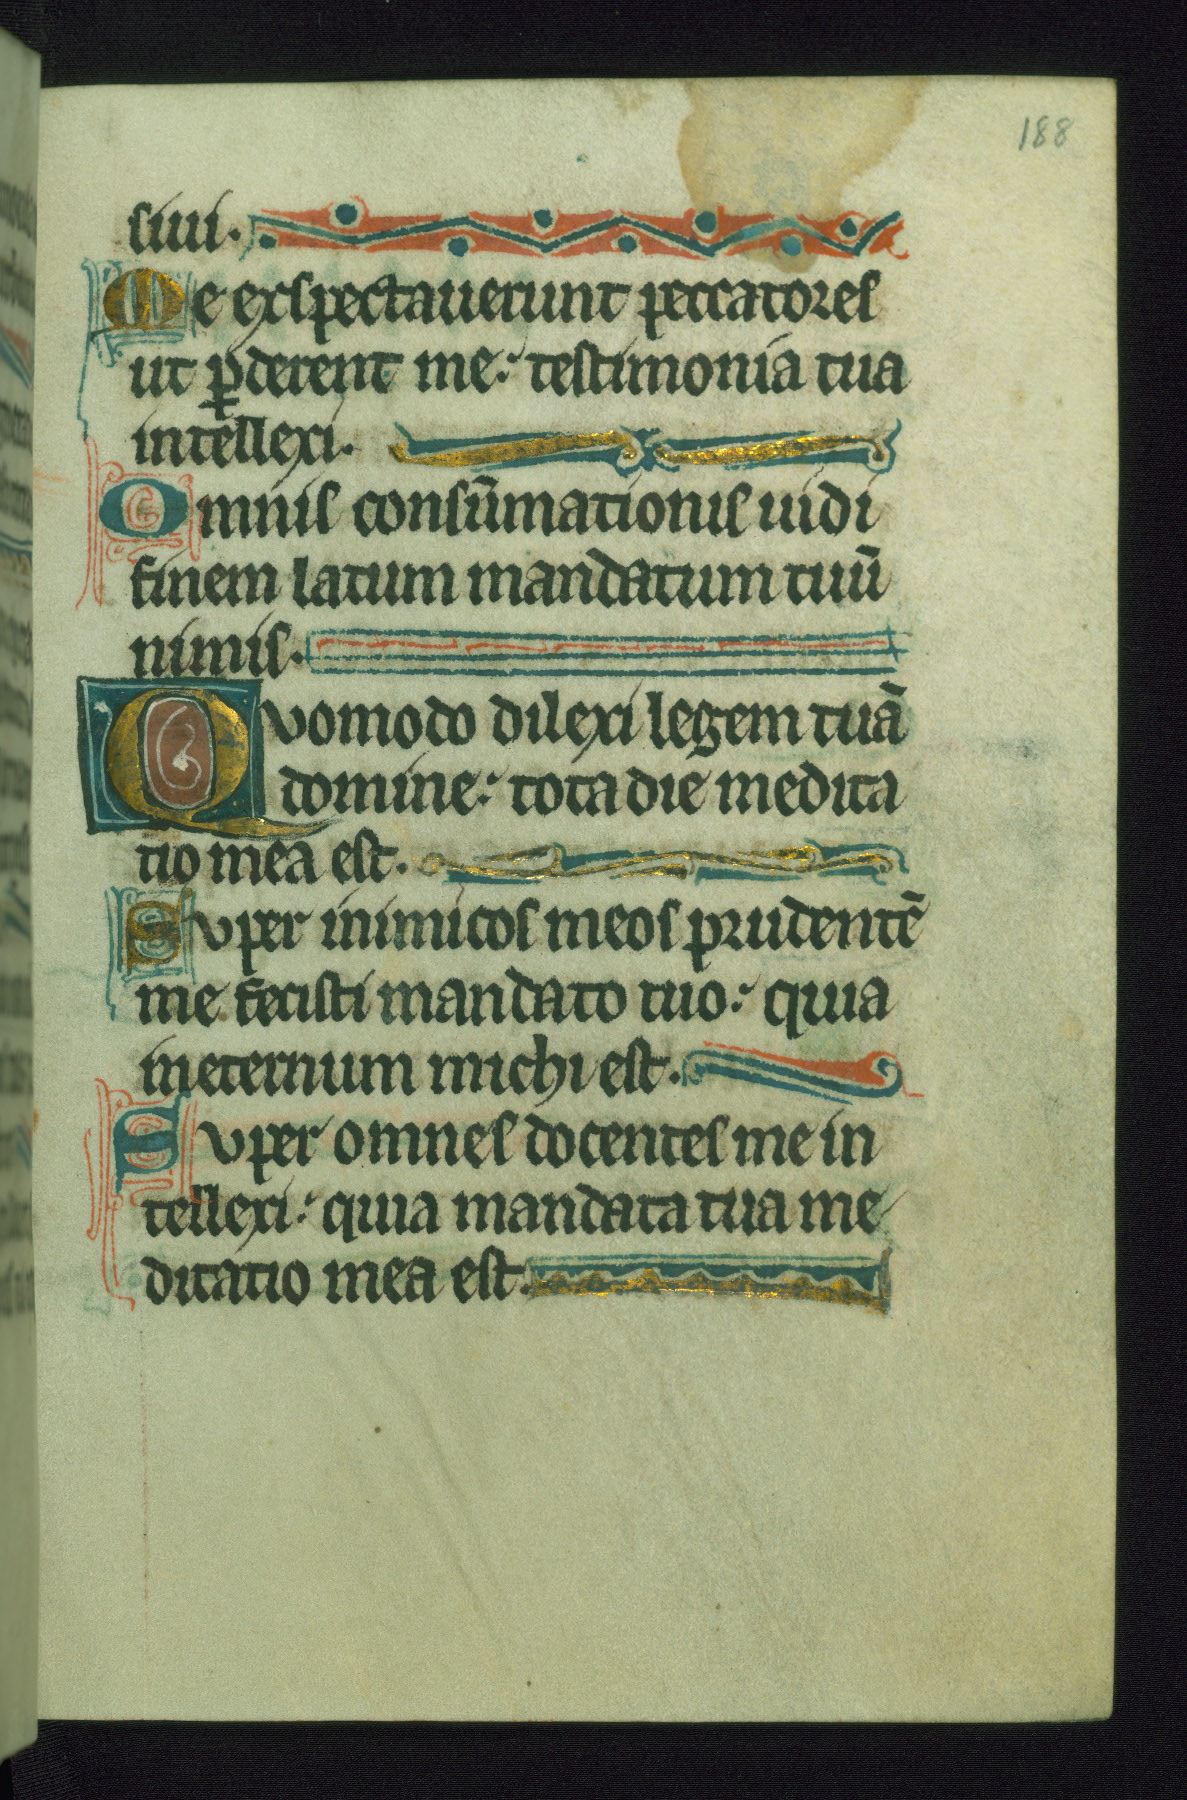 188
siui.
Me exspectauerunt peccatores
ut ꝑderent me: testimonia tua
intellexi.
Omnis consūmationis uidi
finem latum mandatum tuū
nimis.
Qvomodo dilexi legem tuā
domine: tota die medita
tio mea est.
Svper inimicos meos prudentē
me fecisti mandato tuo: quia
in eternum michi est.
Svper omnes docentes me in
tellexi: quia mandata tua me
ditatio mea est.